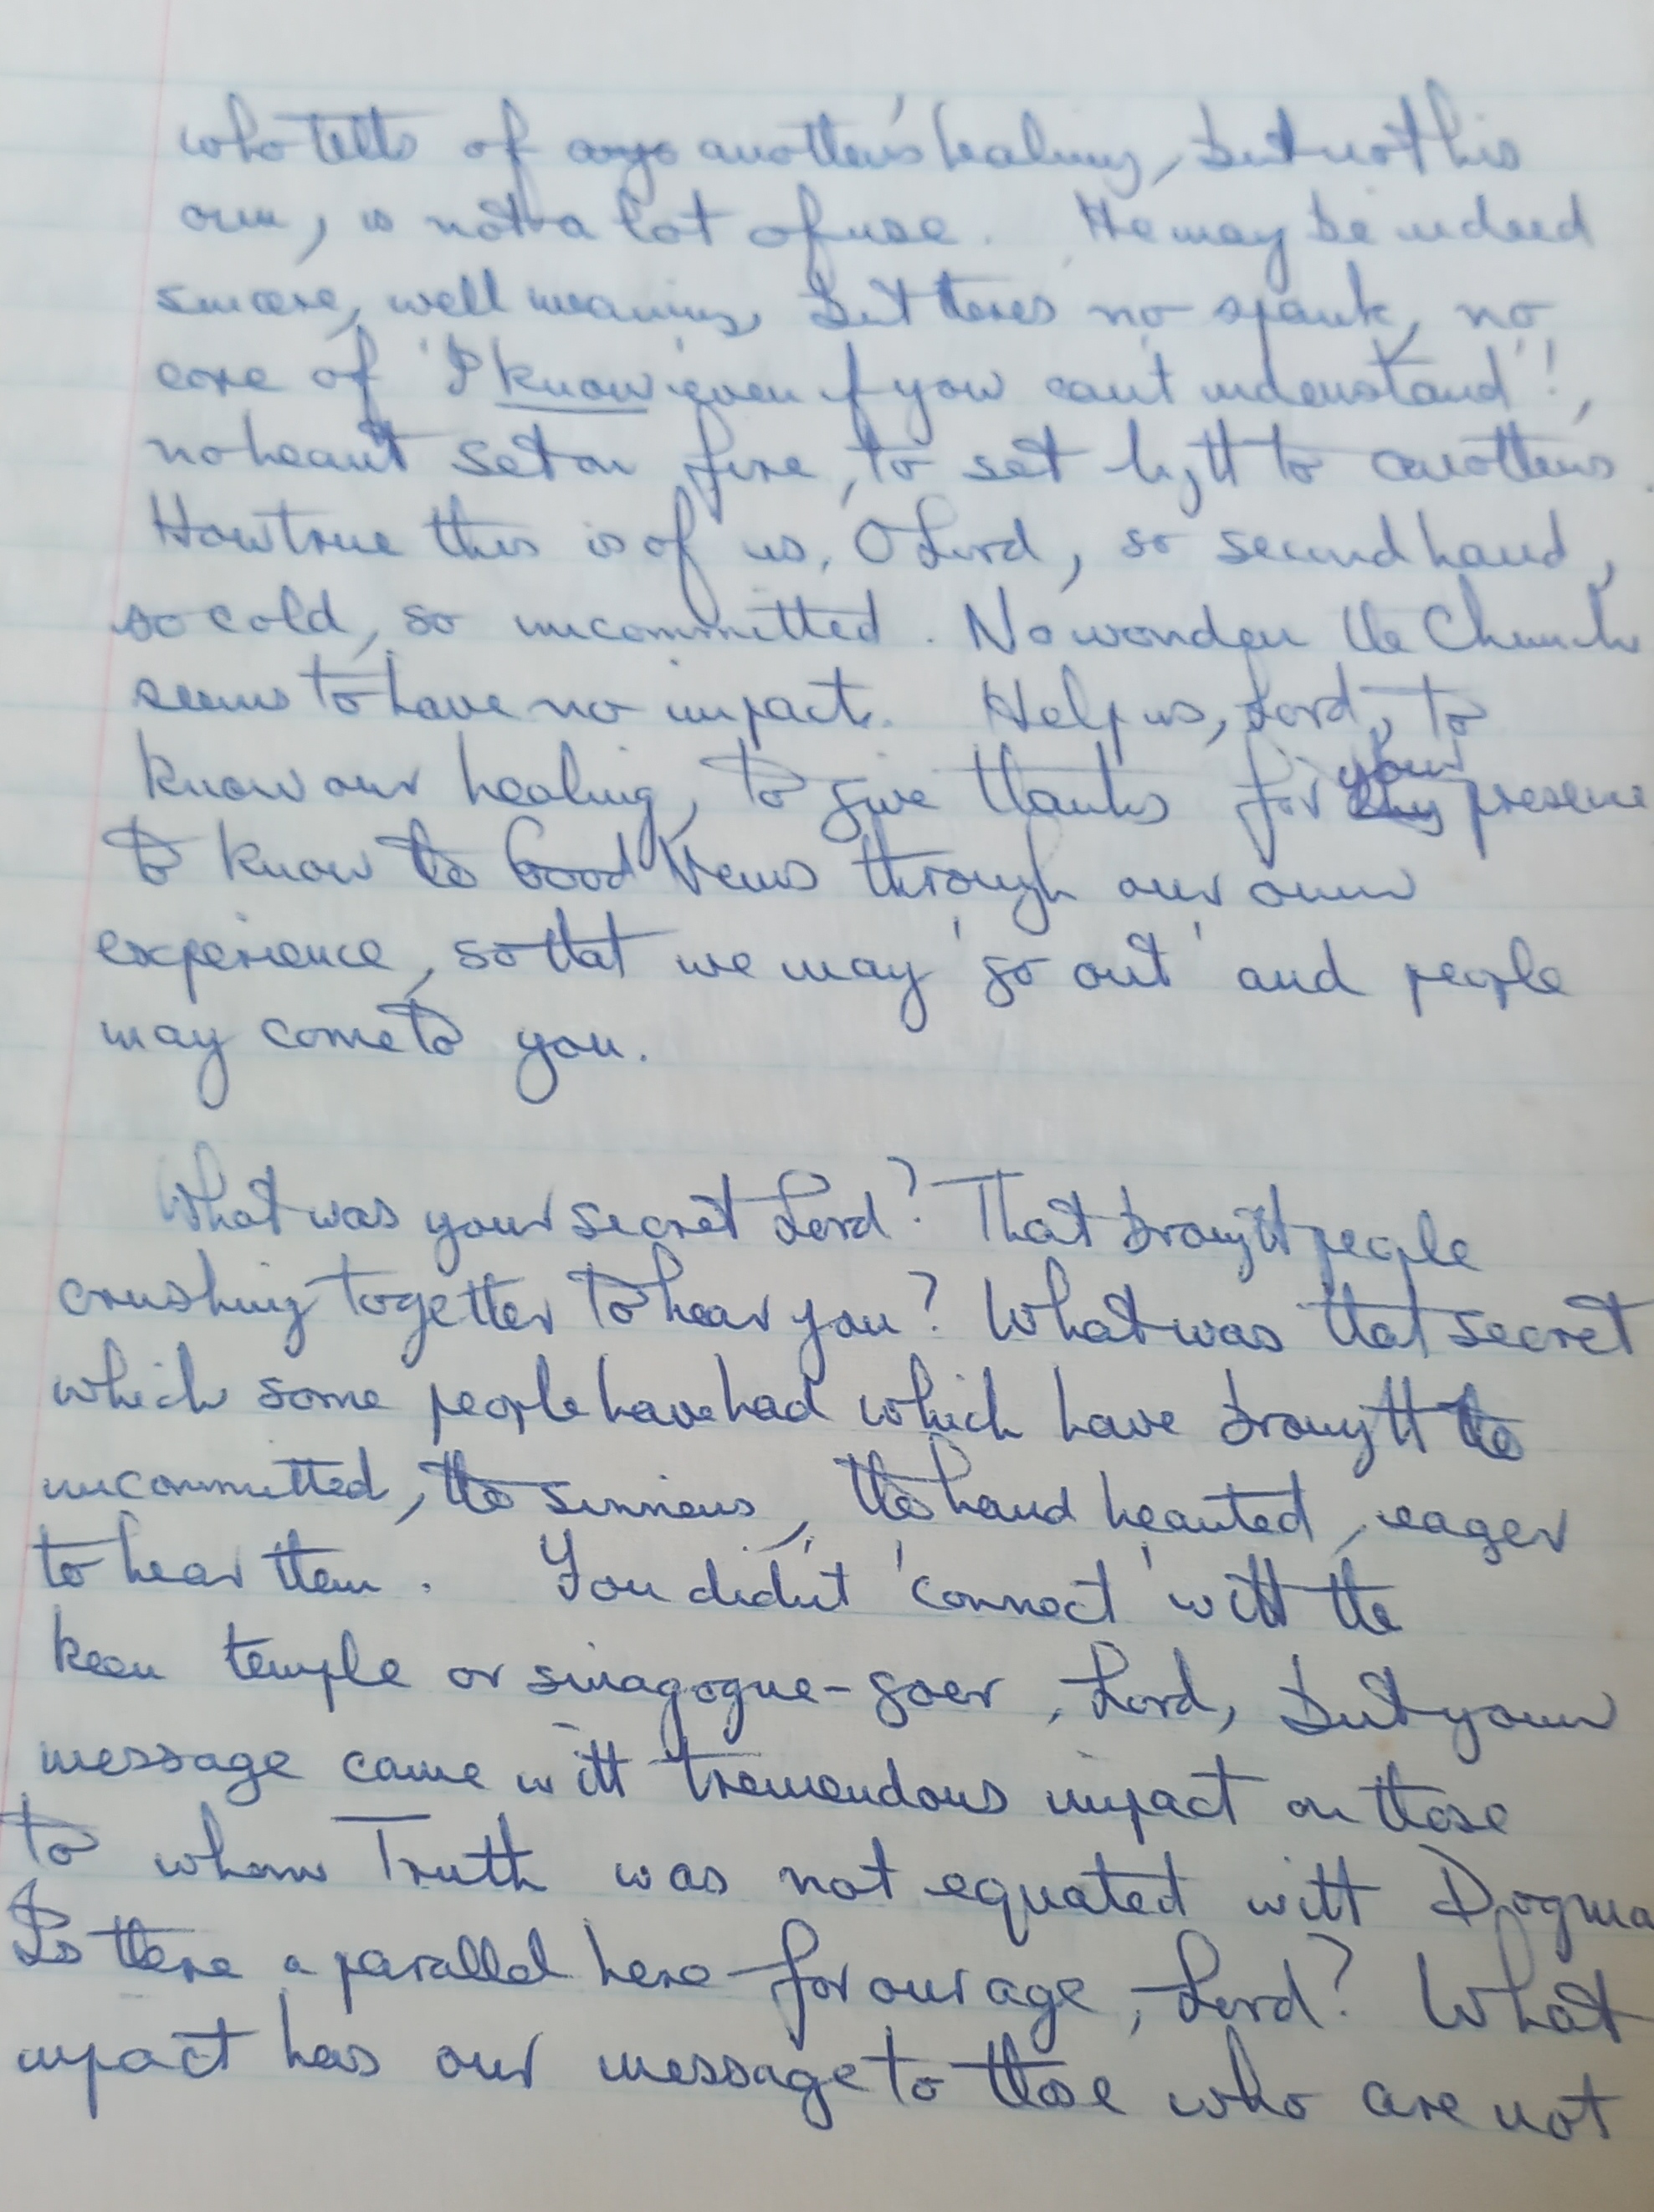 who tells of another's healing, but not his
own, is not a lot of use. He may be indeed
sincere, well meaning, but there's no spark, no
core of 'I know even if you can't understand'!,
no heart set on fire, to set light to another's.
How true this is of us, O Lord, so second hand,
so cold, so uncommitted. No wonder the Church
seems to have no impact. Help us, Lord, to
know our healing, to give thanks for your presence
to know the Good News through our own
experience, so that we may 'go out' and people
may come to you.
What was your secret Lord? That brought people
crushing together to hear you? What was that secret
which some people have had which have brought the
uncommitted, the sinners, the hard hearted, eager
to hear them. You didn't 'connect' with the
keen temple or sinagogue-goer, Lord, but your
message came with tremendous impact on those
to whom Truth was not equated with Dogma
Is there a parallel here for our age, Lord? What
impact has our message to those who are not